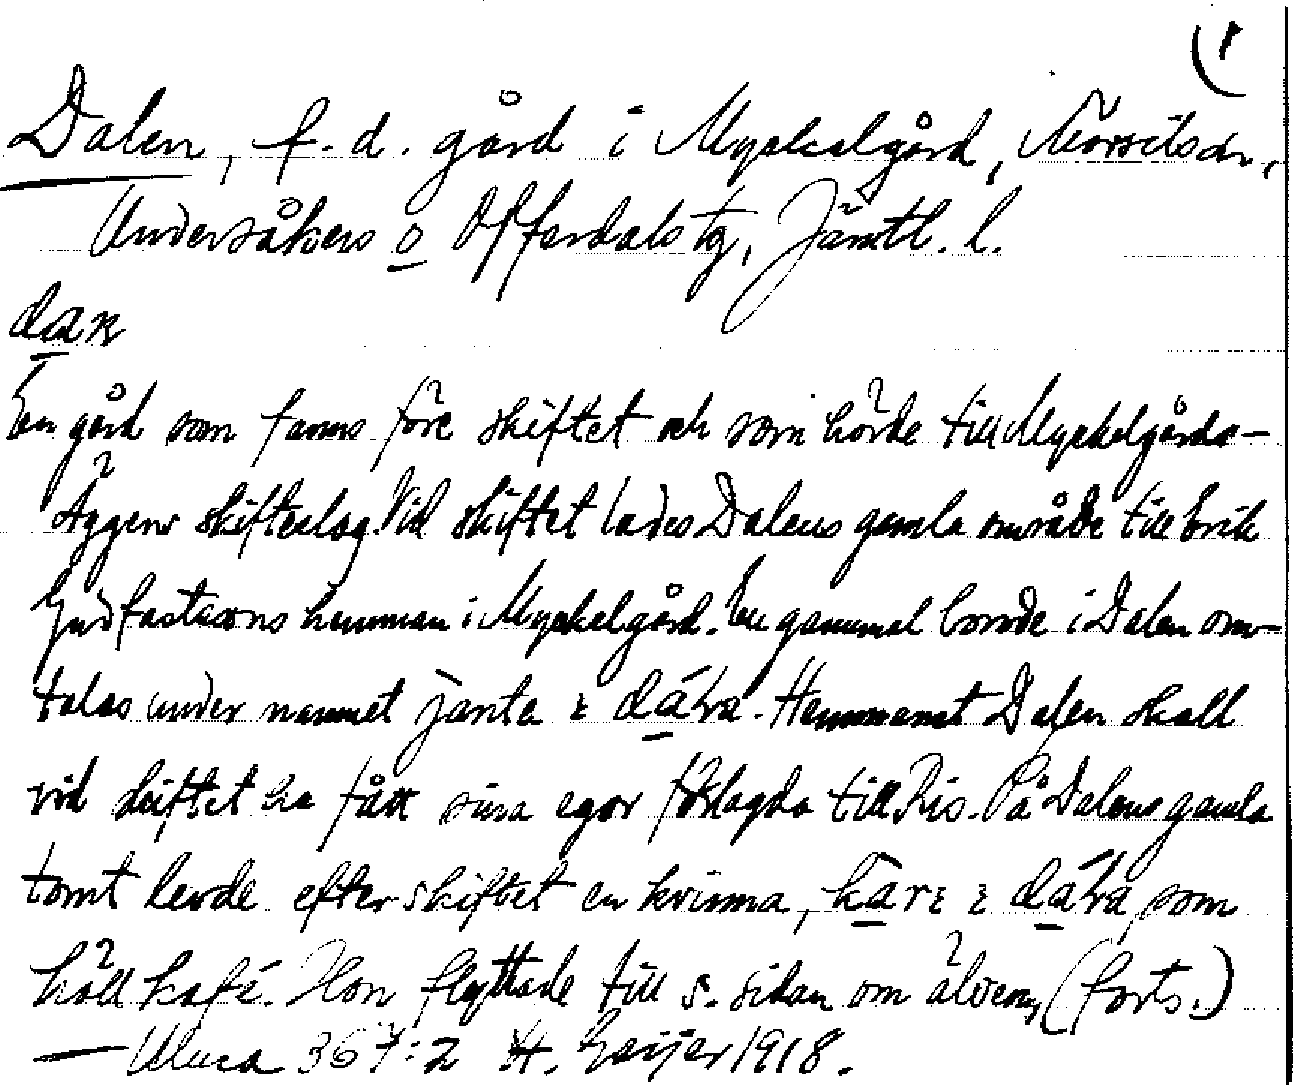 (1
Dalen, f. d. gård i Myckelgård, Mörsils sn,
Undersåkers o Offerdals tg, Jämtl. l.
daɴ
En gård som fanns före skiftet och som hörde till Myckelgårds-
Äggens skifteslag. Vid skiftet lades Dalens gamla område till Erik
Gudfastssons hemman i Myckelgård. En gammal bonde i Dalen om-
talas under namnet jänta ɛ dáła. Hemmanet Dalen skall
vid skiftet ha fått sina egor förlagda till Ris. På Dalens gamla
tomt levde efter skiftet en kvinna, karɛ ɛ dáła, som
höll kafé. Hon flyttade till s. sidan om älven, (forts.)
— Uluca 367:2 H. Geijer 1918.